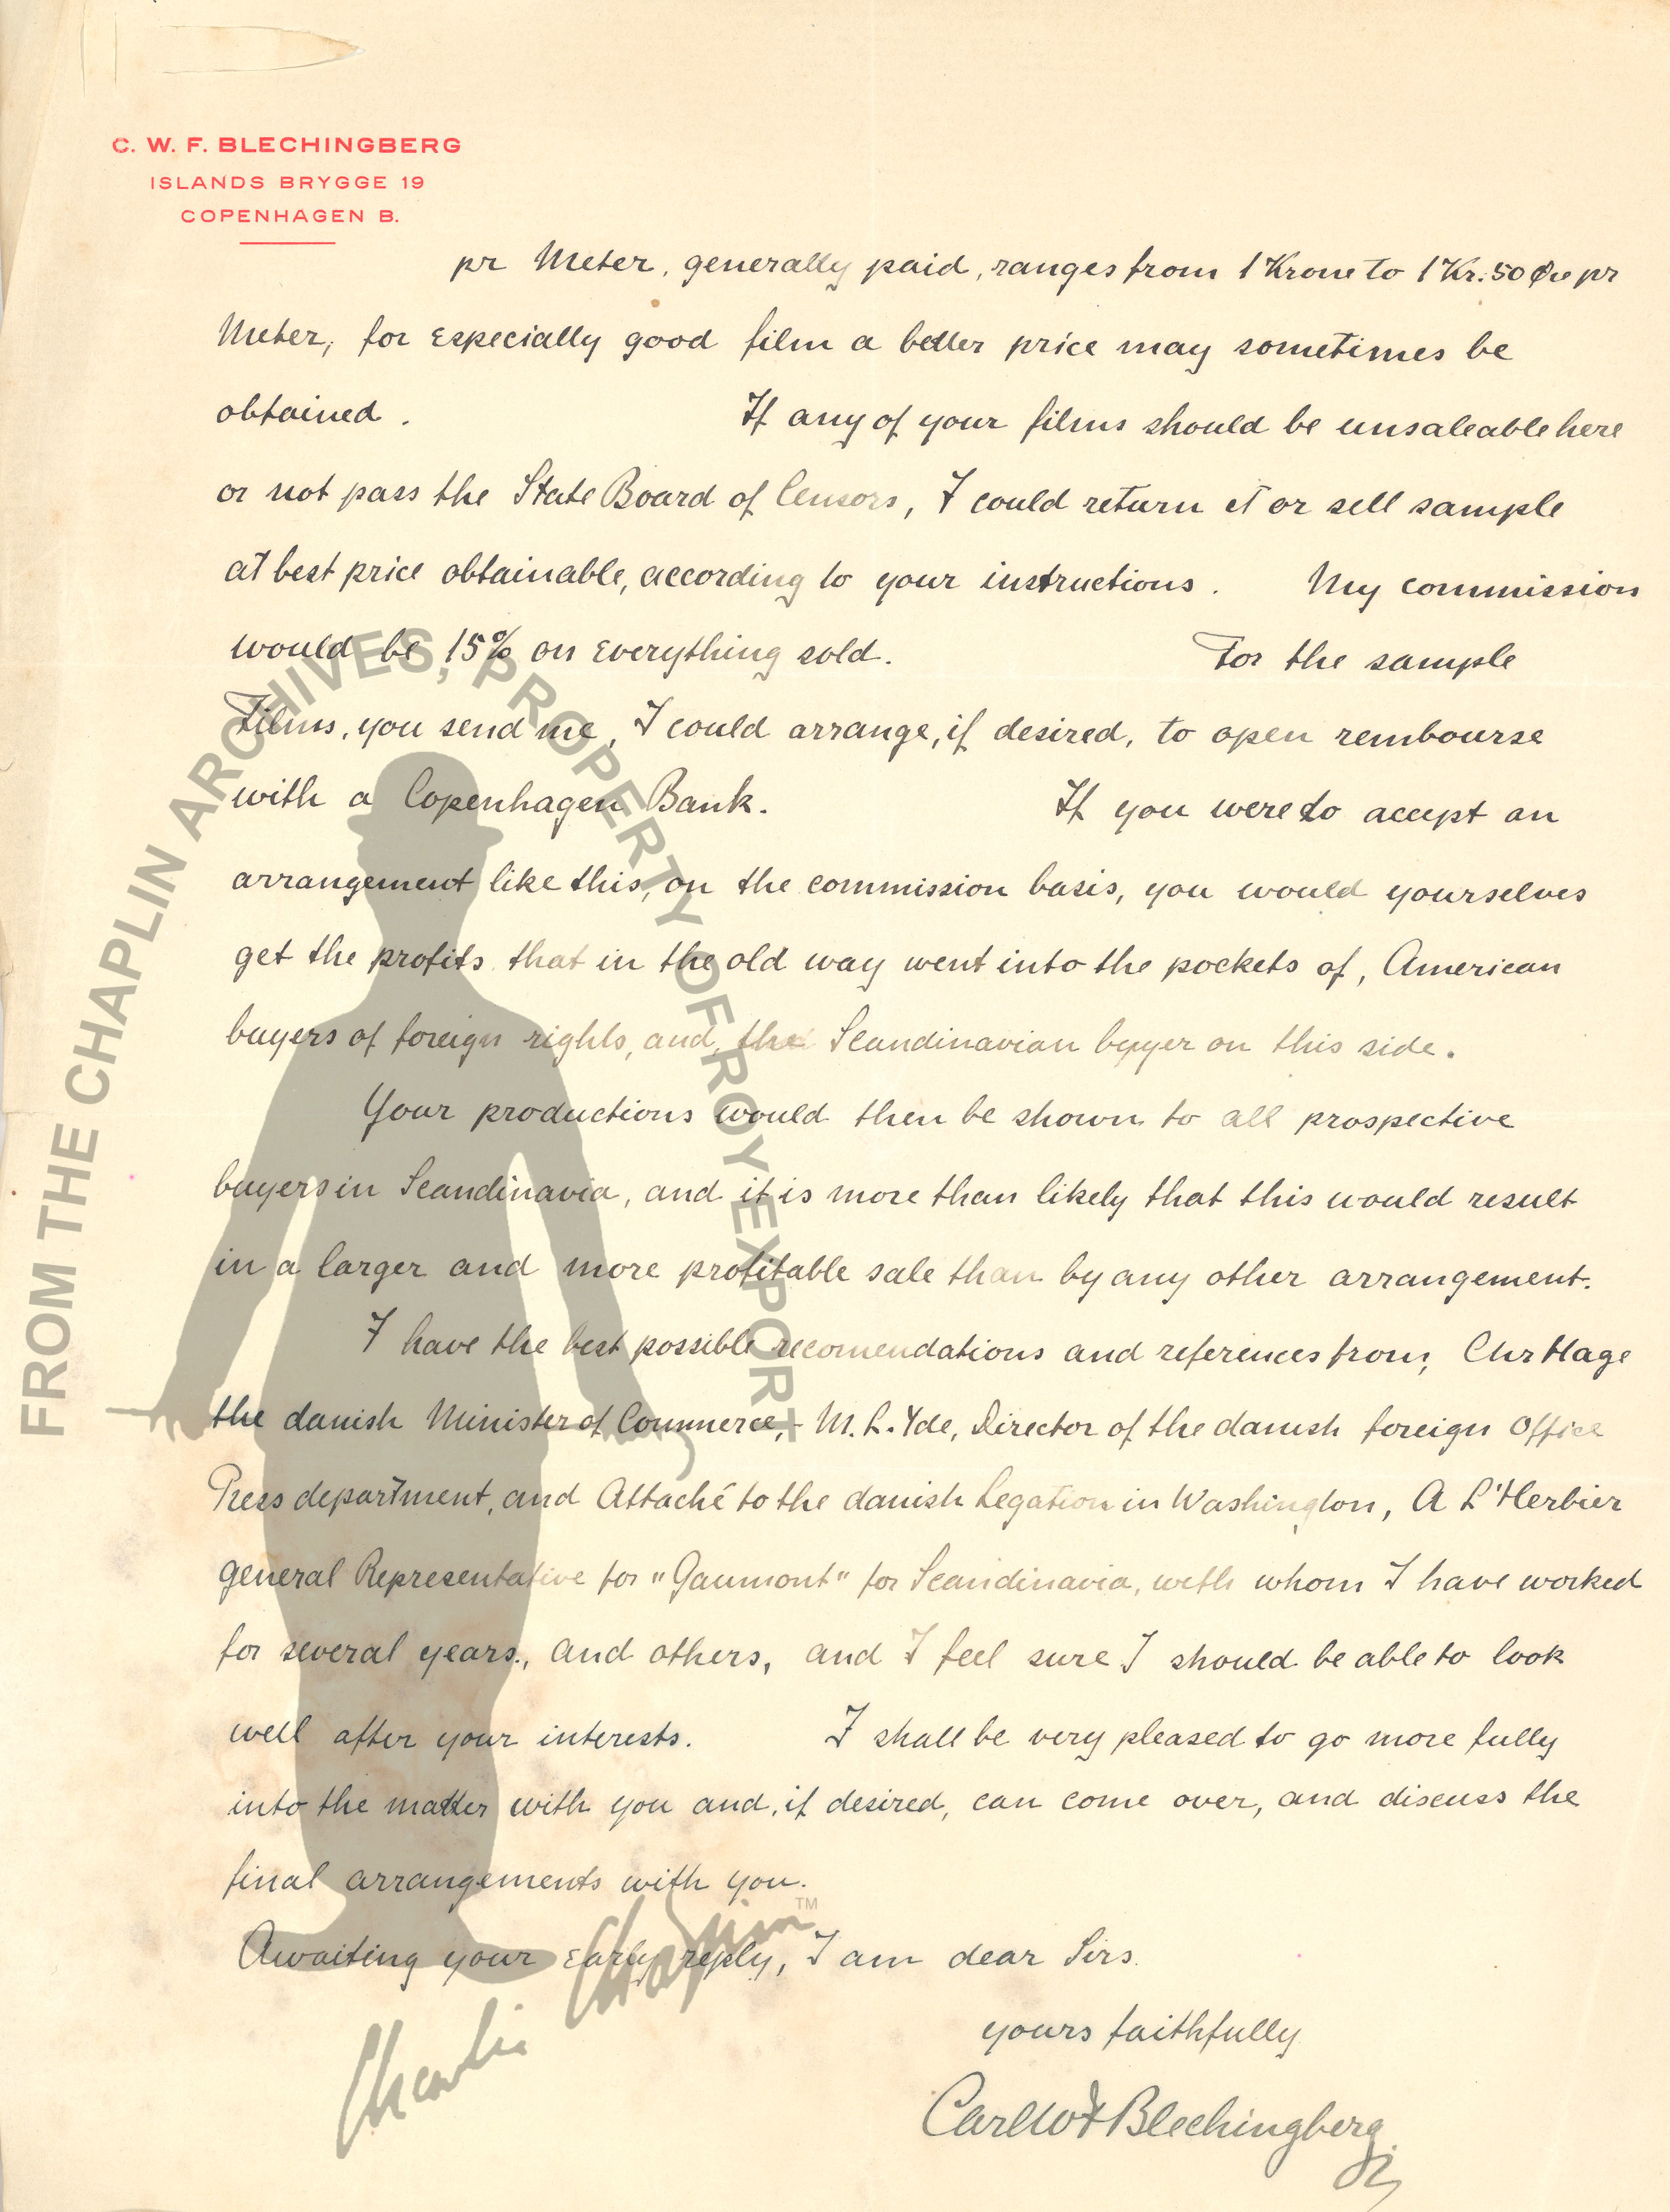 C. W. F. BLECHINGBERG
ISLANDS BRYGGE 19
COPENHAGEN B.
pr Meter, generally paid, ranges from 1 Krone to 1 Kr. 50 Øre pr
Meter, for especially good film a better price may sometimes be
obtained. If any of your films should be unsaleable here
or not pass the State Board of Censors, I could return it or sell sample
at best price obtainable, according to your instructions. My commission
would be 15% on everything sold. For the sample
Films, you send me, I could arrange, if desired, to open rembourse
with a Copenhagen Bank. If you were to accept an
arrangement like this, on the commission basis, you would yourselves
get the profits that in the old way went into the pockets of, American
buyers of foreign rights, and, the Scandinavian buyer on this side.
Your productions would then be shown to all prospective
buyers in Scandinavia, and it is more than likely that this would result
in a larger and more profitable sale than by any other arrangement.
I have the best possible recomendations and references from, Chr Hage
the danish Minister of Commerce, - M. L. Yde, Director of the danish foreign Office
Press department, and Attaché to the danish Legation in Washington, A L'Herbier
general Representative for "Gaumont" for Scandinavia, with whom I have worked
for several years., and others, and I feel sure I should be able to look
well after your interests. I shall be very pleased to go more fully
into the matter with you and, if desired, can come over, and discuss the
final arrangements with you.
Awaiting your early reply, I am dear Sirs.
yours faithfully
Carl W F Blechingberg
FROM THE CHAPLIN ARCHIVES, PROPERTY OF ROY EXPORT
Charlie Chaplin™